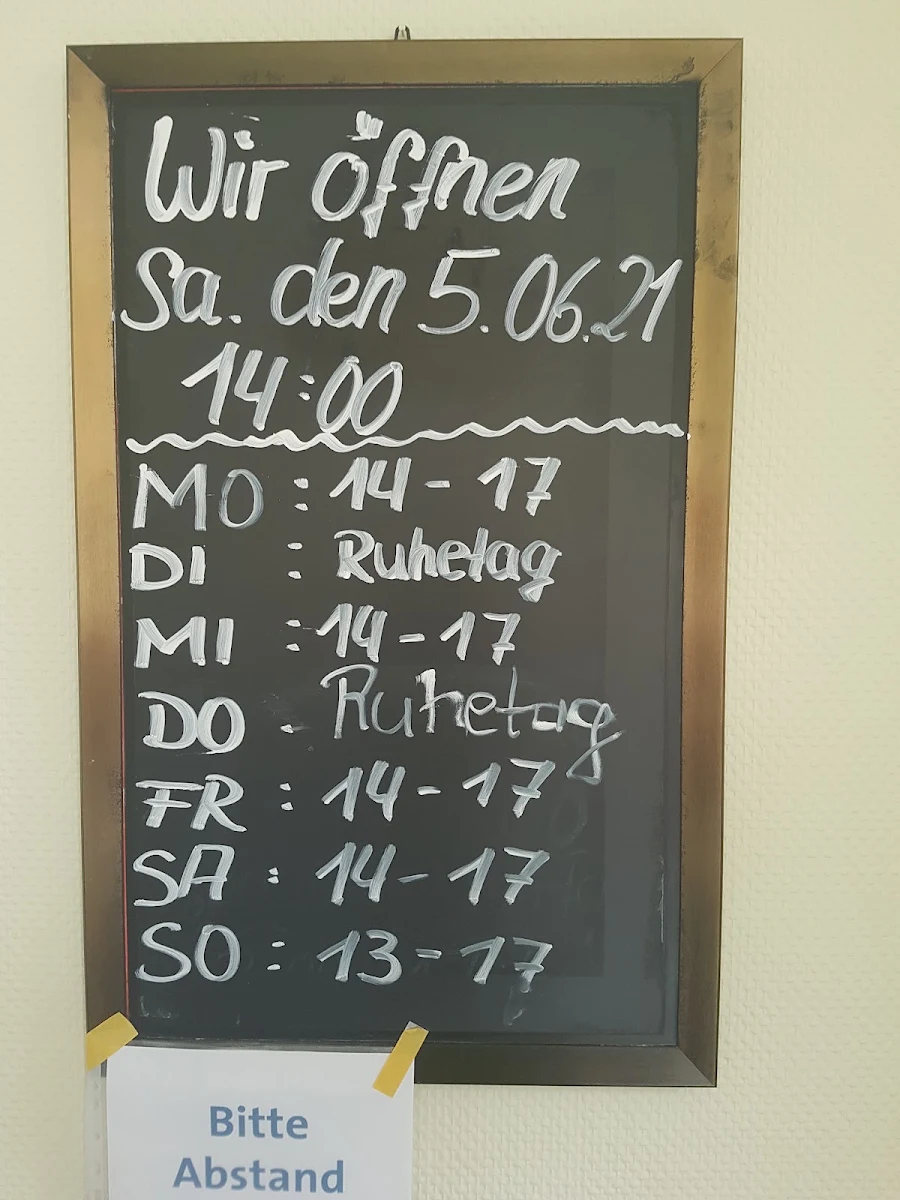 Wir öffnen
Sa. den 5.06.21
14:00
MO : 14 - 17
DI : Ruhetag
MI : 14 - 17
DO . Ruhetag
FR : 14 - 17
SA : 14 - 17
SO : 13 - 17
Bitte
Abstand